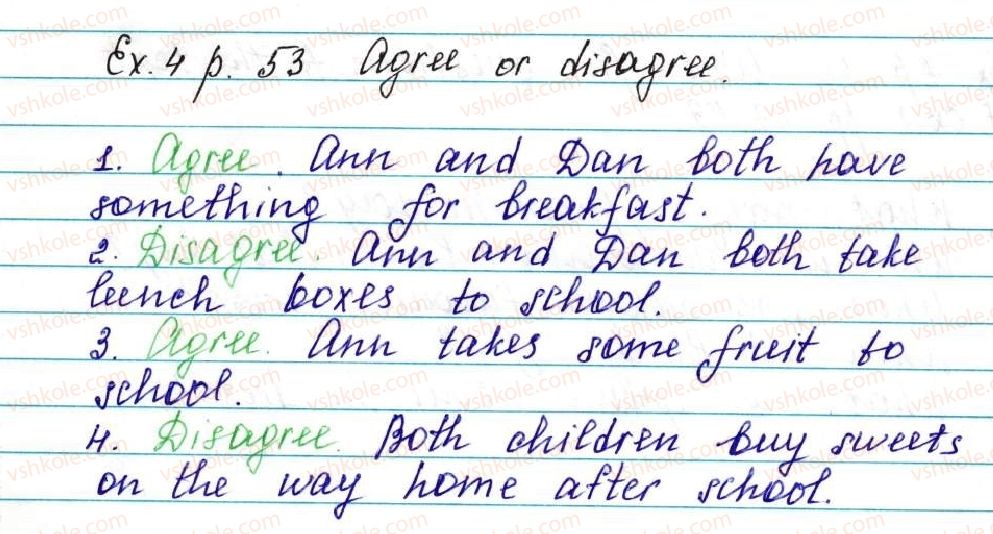 Ex. 4 p. 53 Agree or disagree.
1. Agree. Ann and Dan both have
something for breakfast.
2. Disagree. Ann and Dan both take
lunch boxes to school.
3. Agree. Ann takes some fruit to
school.
4. Disagree. Both children buy sweets
on the way home after school.
vshkole.com